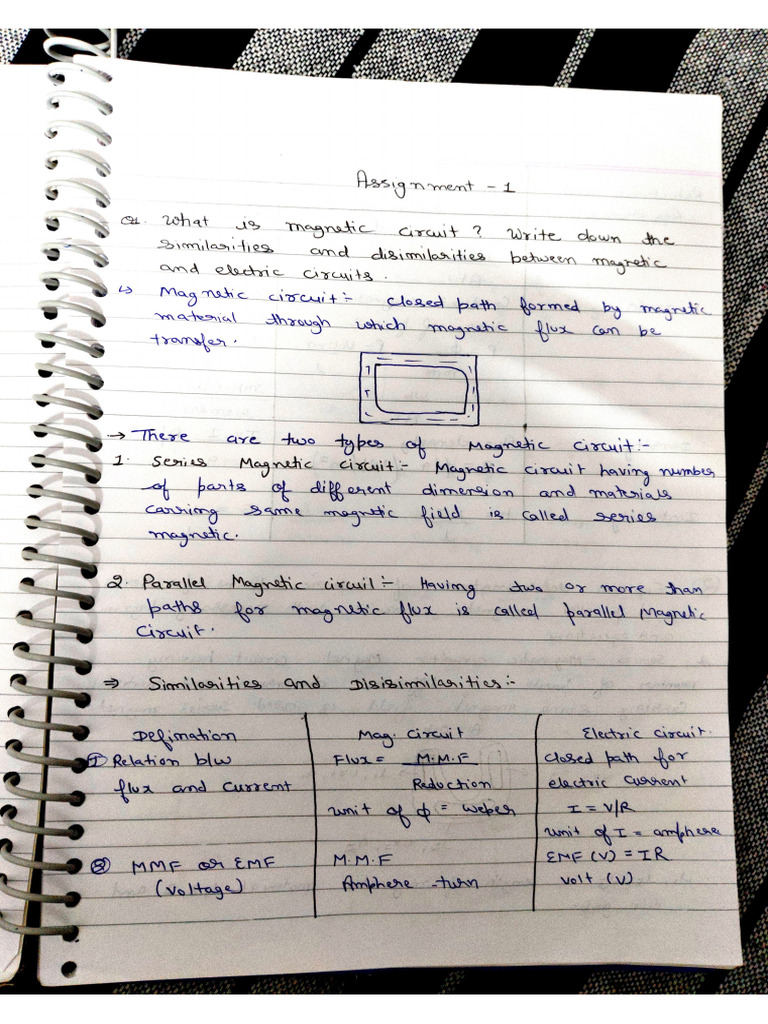 Assignment - 1
Q1. What is magnetic circuit ? Write down the
similarities and disimilarities between magnetic
and electric circuits.
↳ Magnetic circuit:- closed path formed by magnetic
material through which magnetic flux can be
transfer.
→ There are two types of Magnetic circuit:-
1. Series Magnetic circuit:- Magnetic circuit having number
of parts of different dimension and materials
carring same magnetic field is called series
magnetic.
2. Parallel Magnetic circuil:- Having two or more than
paths for magnetic flux is called parallel Magnetic
Circuit.
⇒ Similarities and Disisimilarities:-
Defination Mag. circuit Electric circuit.
① Relation b/w Flux = M.M.F closed path for
flux and current Reduction electric current
unit of ϕ = weber I = V/R
unit of I = amphere
② MMF or EMF M.M.F EMF (V) = IR
(voltage) Amphere -turn volt (V)